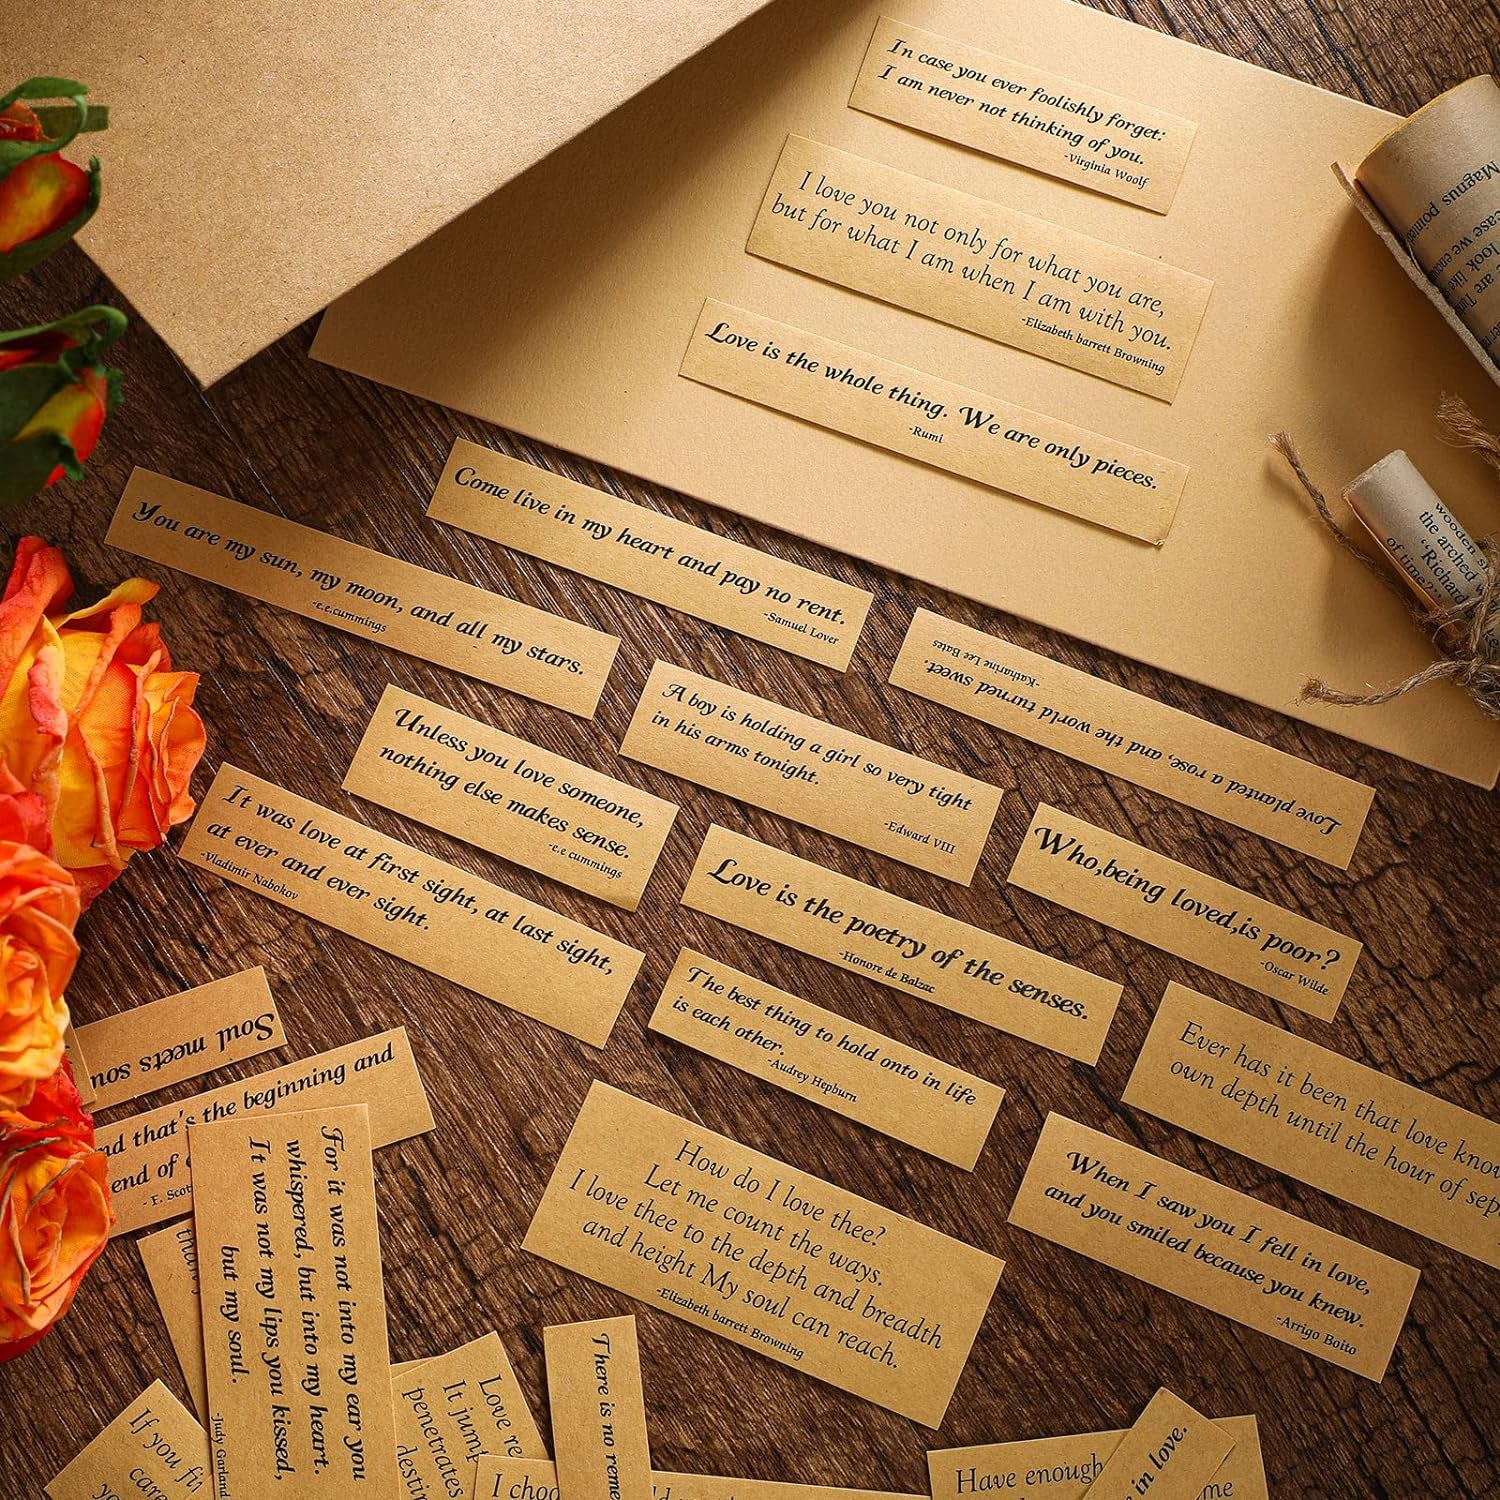 In case you ever foolishly forget:
I am never not thinking of you.
-Virginia Woolf
I love you not only for what you are,
but for what I am when I am with you.
-Elizabeth barrett Browning
Love is the whole thing. We are only pieces.
-Rumi
Magnus pointed
case we
look like
are
wooden
the arched
"Richard
of time?"
Come live in my heart and pay no rent.
-Samuel Lover
You are my sun, my moon, and all my stars.
-e.e.cummings
Love planted a rose, and the world turned sweet.
-Katharine Lee Bates
A boy is holding a girl so very tight
in his arms tonight.
-Edward VIII
Unless you love someone,
nothing else makes sense.
-e.e cummings
It was love at first sight, at last sight,
at ever and ever sight.
-Vladimir Nabokov
Who,being loved,is poor?
-Oscar Wilde
Love is the poetry of the senses.
-Honore de Balzac
The best thing to hold onto in life
is each other.
-Audrey Hepburn
Ever has it been that love know
own depth until the hour of sep
Soul meets sou
nd that's the beginning and
end of
- F. Scot
For it was not into my ear you
whispered, but into my heart.
It was not my lips you kissed,
but my soul.
-Judy Garland
How do I love thee?
Let me count the ways.
I love thee to the depth and breadth
and height My soul can reach.
-Elizabeth barrett Browning
When I saw you I fell in love,
and you smiled because you knew.
-Arrigo Boito
than
If you fin
care
yo
Love re
It jump
penetrates
destin
There is no reme
I choo
Have enough
me
in love.